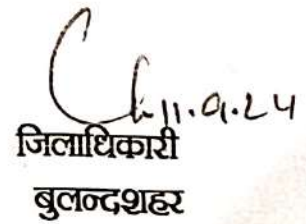 11.9.24
जिलाधिकारी
बुलन्दशहर